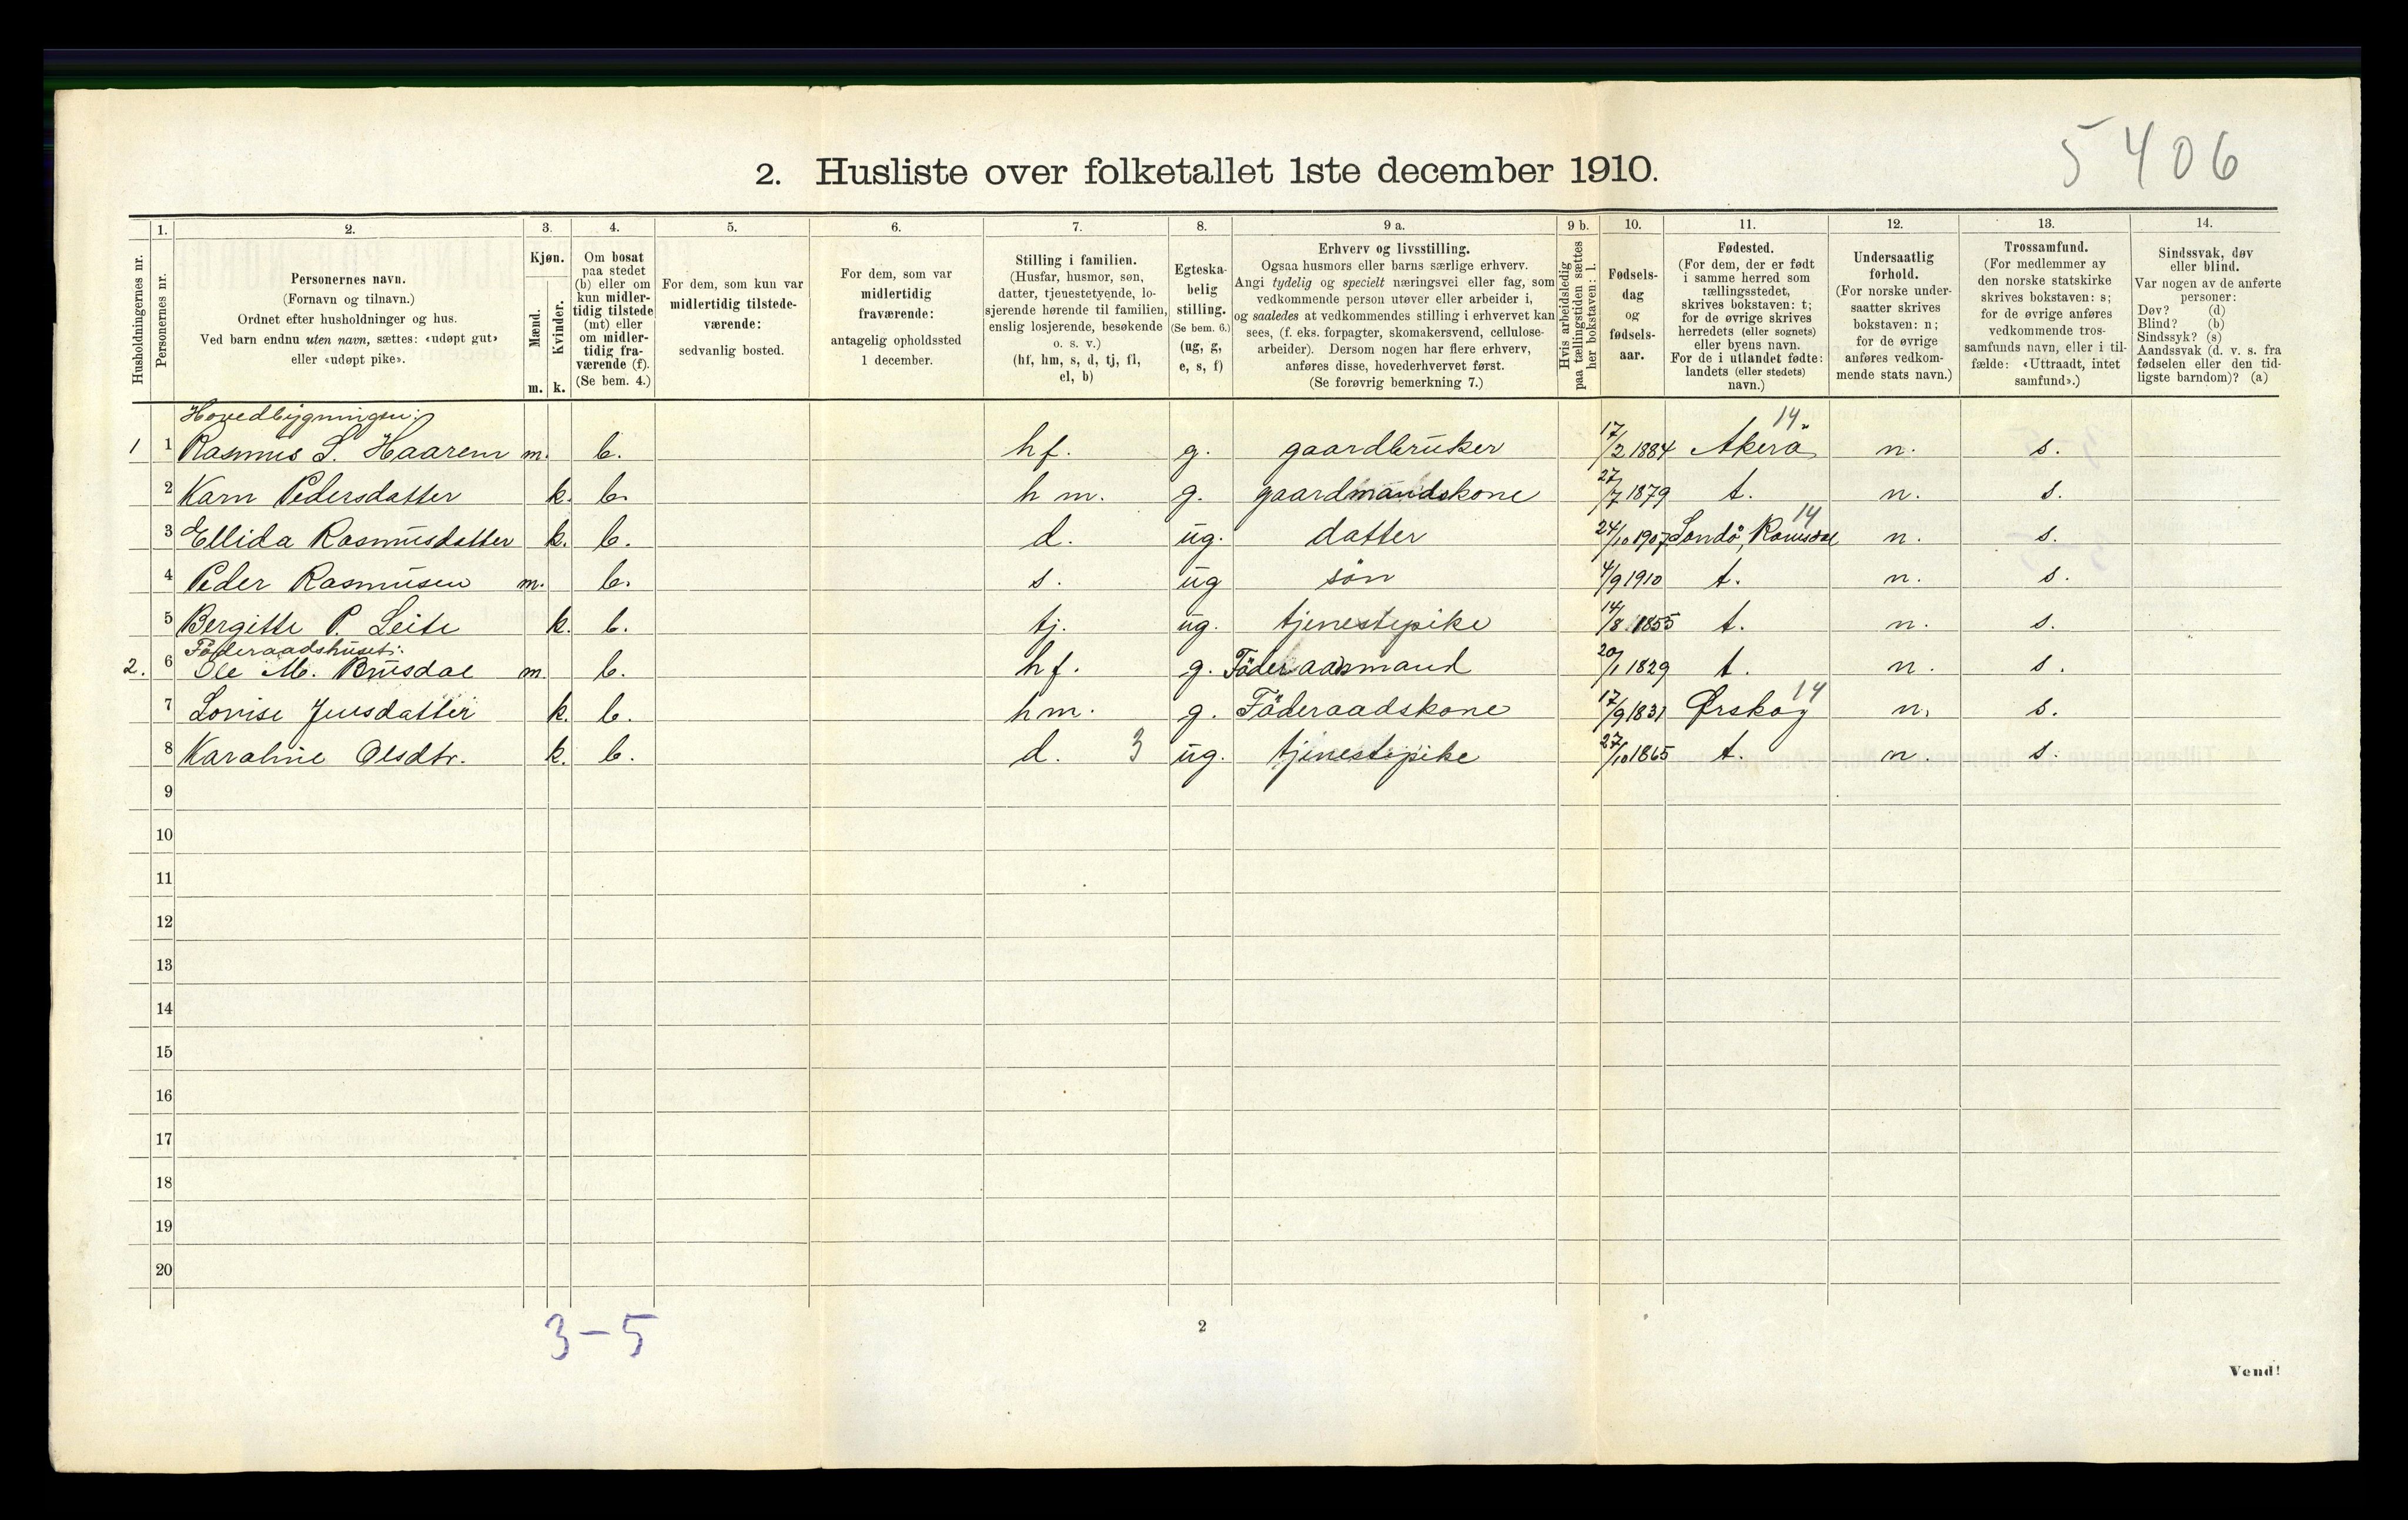 5406
2. Husliste over folketallet 1ste december 1910.
Husholdningernes nr.
1.
Personernes nr.
2.
Personernes navn.
(Fornavn og tilnavn.)
Ordnet efter husholdninger og hus.
Ved barn endnu uten navn, sættes: «udøpt gut»
eller «udøpt pike».
3.
Kjøn.
Mænd.
m.
Kvinder.
k.
4.
Om bosat
paa stedet
(b) eller om
kun midler-
tidig tilstede
(mt) eller
om midler-
tidig fra-
værende (f).
(Se bem. 4.)
5.
For dem, som kun var
midlertidig tilstede-
værende:
sedvanlig bosted.
6.
For dem, som var
midlertidig
fraværende:
antagelig opholdssted
1 december.
7.
Stilling i familien.
(Husfar, husmor, søn,
datter, tjenestetyende, lo-
sjerende hørende til familien,
enslig losjerende, besøkende
o. s. v.)
(hf, hm, s, d, tj, fl,
el, b)
8.
Egteska-
belig
stilling.
(Se bem. 6.)
(ug, g,
e, s, f)
9 a.
Erhverv og livsstilling.
Ogsaa husmors eller barns særlige erhverv.
Angi tydelig og specielt næringsvei eller fag, som
vedkommende person utøver eller arbeider i,
og saaledes at vedkommendes stilling i erhvervet kan
sees, (f. eks. forpagter, skomakersvend, cellulose-
arbeider). Dersom nogen har flere erhverv,
anføres disse, hovederhvervet først.
(Se forøvrig bemerkning 7.)
9 b.
Hvis arbeidsledig
paa tællingstiden sættes
her bokstaven: l.
10.
Fødsels-
dag
og
fødsels-
aar.
11.
Fødested.
(For dem, der er født
i samme herred som
tællingsstedet,
skrives bokstaven: t;
for de øvrige skrives
herredets (eller sognets)
eller byens navn.
For de i utlandet fødte:
landets (eller stedets)
navn.)
12.
Undersaatlig
forhold.
(For norske under-
saatter skrives
bokstaven: n;
for de øvrige
anføres vedkom-
mende stats navn.)
13.
Trossamfund.
(For medlemmer av
den norske statskirke
skrives bokstaven: s;
for de øvrige anføres
vedkommende tros-
samfunds navn, eller i til-
fælde: «Uttraadt, intet
samfund».)
14.
Sindssvak, døv
eller blind.
Var nogen av de anførte
personer:
Døv? (d)
Blind? (b)
Sindssyk? (s)
Aandssvak (d. v. s. fra
fødselen eller den tid-
ligste barndom)? (a)
Hovedbygningen:
1 1 Rasmus S. Haarem m. b. hf. g. gaardbruker 17/2 1884 Akerö 14 n. s.
2 Karn Pedersdatter k. b. hm. g. gaardmandskone 27/7 1879 t. n. s.
3 Ellida Rasmusdatter k. b. d. ug. datter 24/10 1907 Sandö, Romsdal 14 n. s.
4 Peder Rasmusen m. b. s. ug sön 4/9 1910 t. n. s.
5 Bergitte P. Leite k. b. tj. ug. tjenestepike 14/8 1855 t. n. s.
Föderaadshuset:
2. 6 Ole M. Brusdal m. b. hf. g. Föderaadsmand 20/1 1829 t. n. s.
7 Lovise Jensdatter k. b. hm. g. Föderaadskone 17/9 1831 Ørskog 14 n. s.
8 Karoline Olsdtr. k. b. d. 3 ug. tjenestepike 27/10 1865 t. n. s.
9
10
11
12
13
14
15
16
17
18
19
20
3-5
2
Vend!